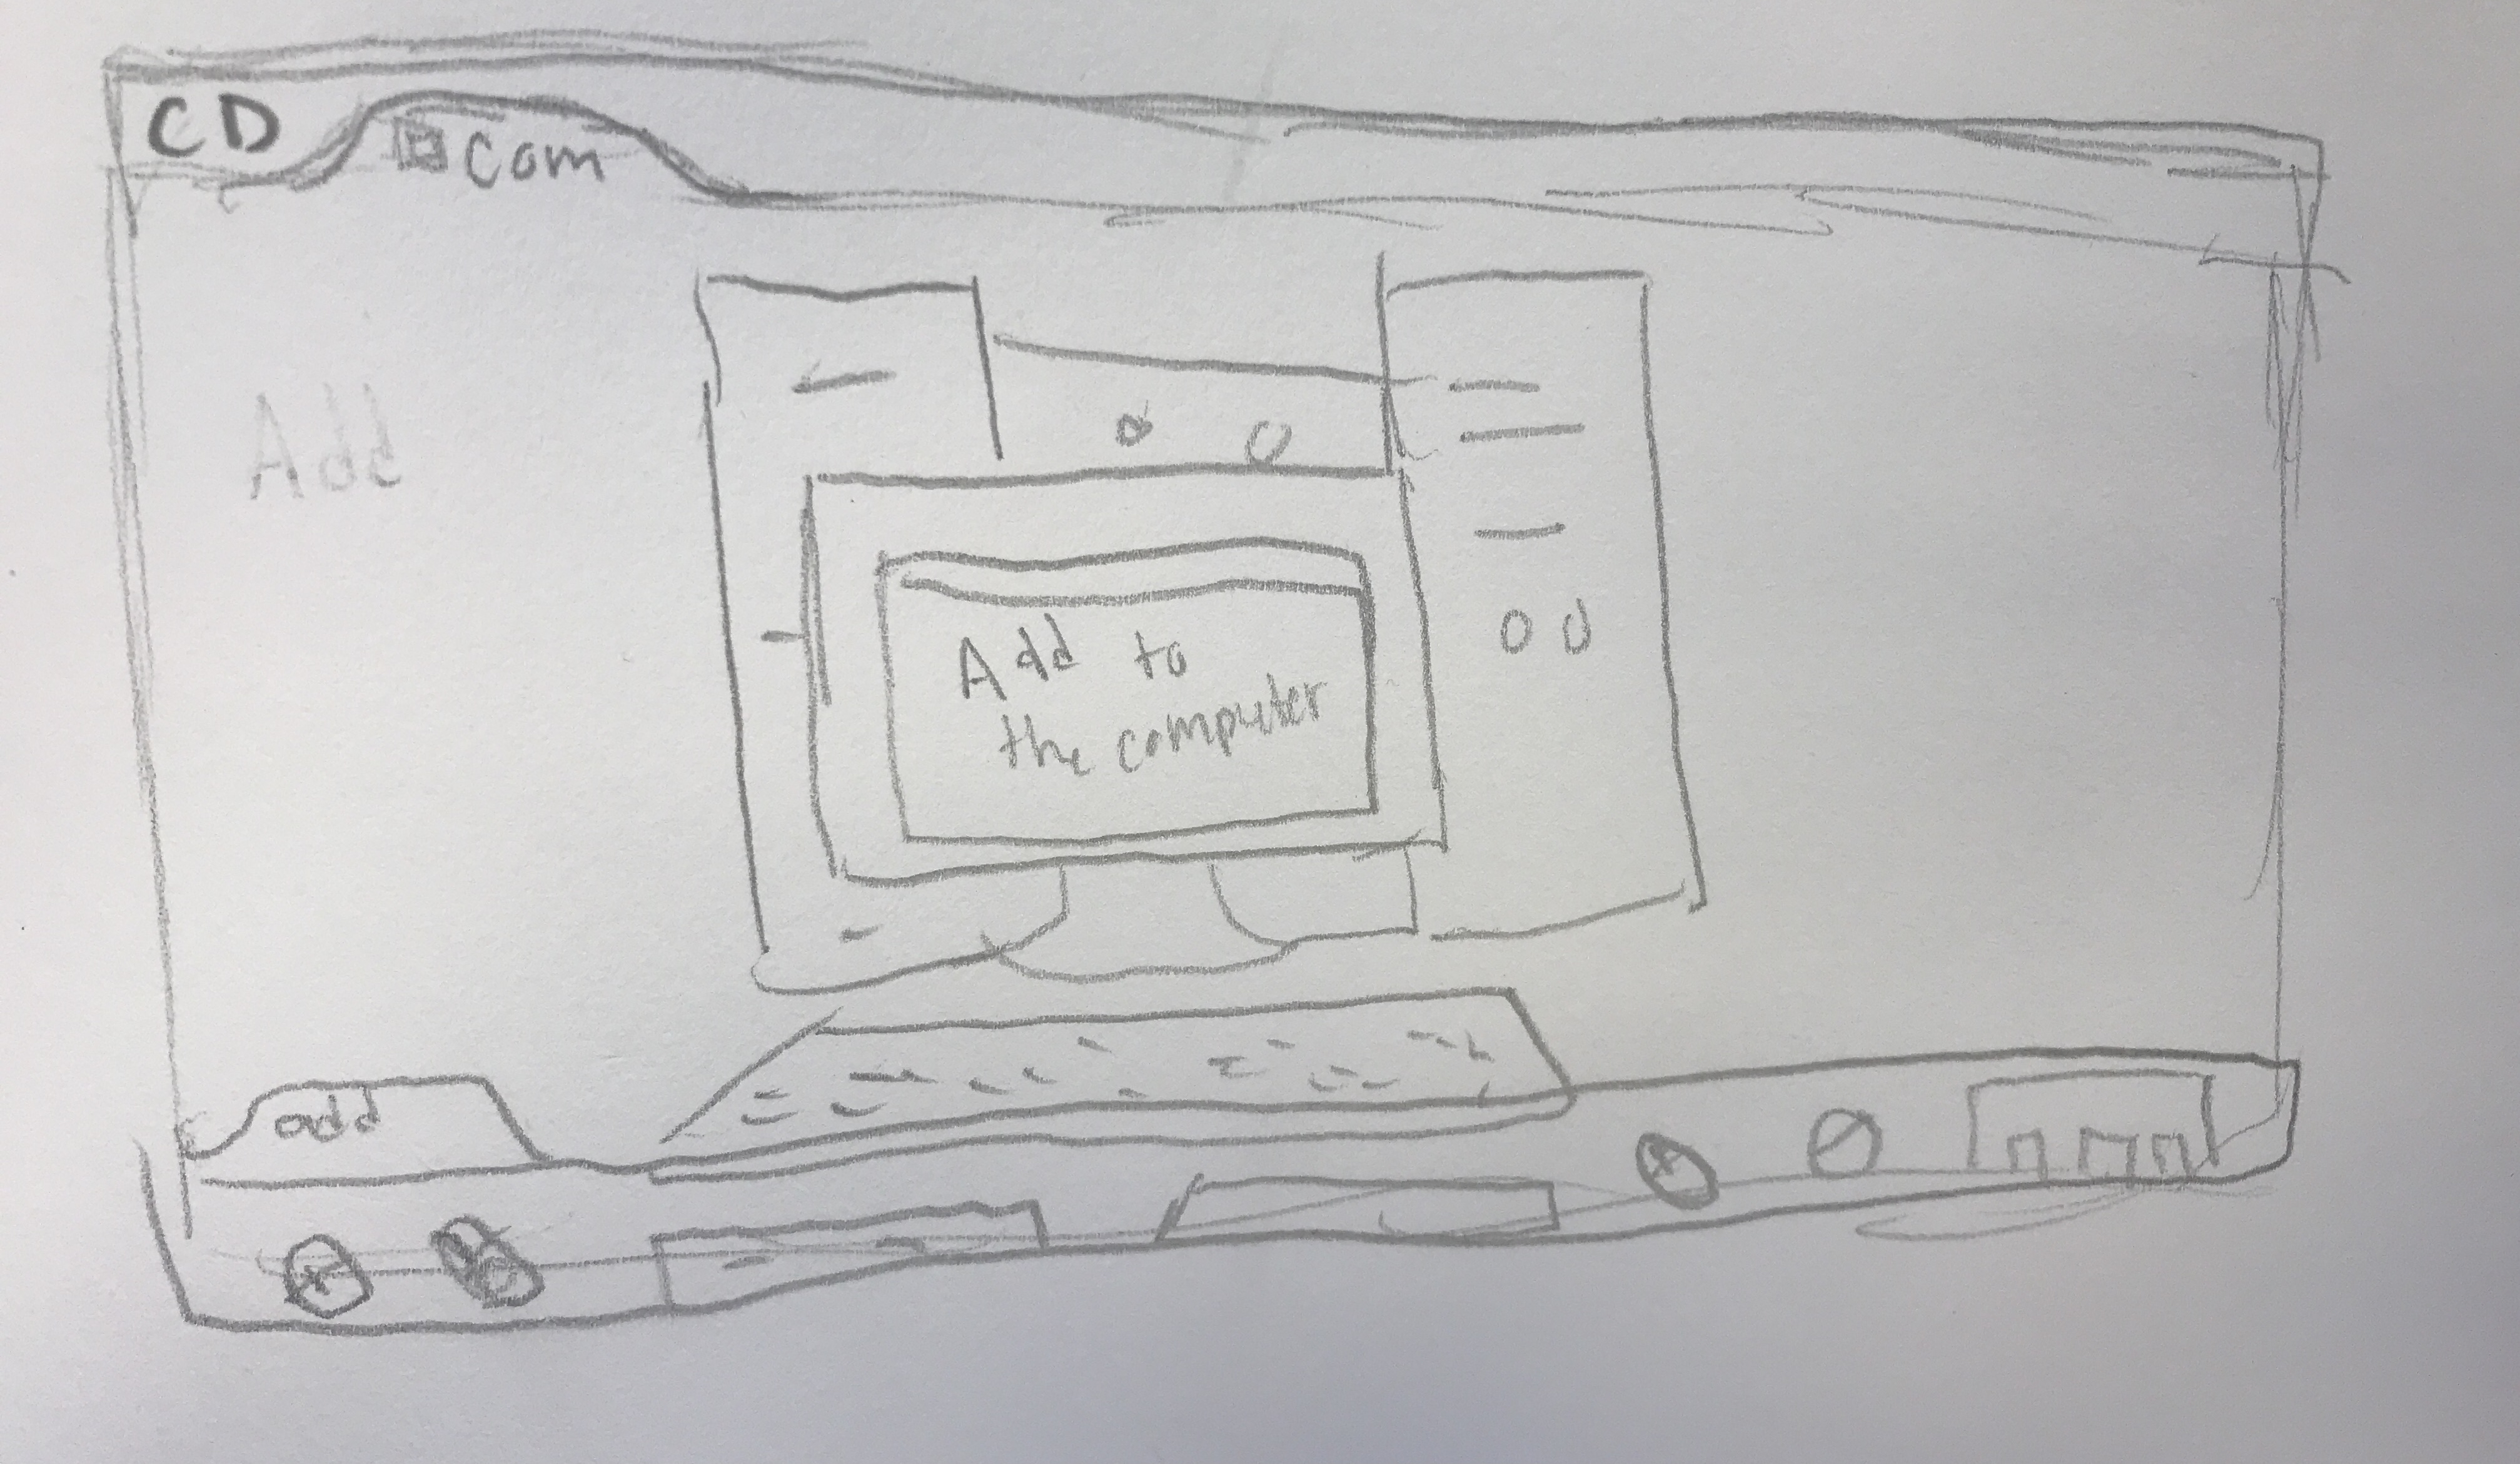 CD
Com
Add
Add to
the computer
add